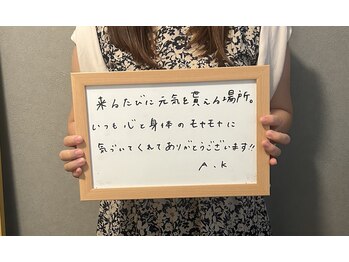 来るたびに元気を貰える場所。
いつも心と身体のモヤモヤに
気づいてくれてありがとうございます!!
A.K